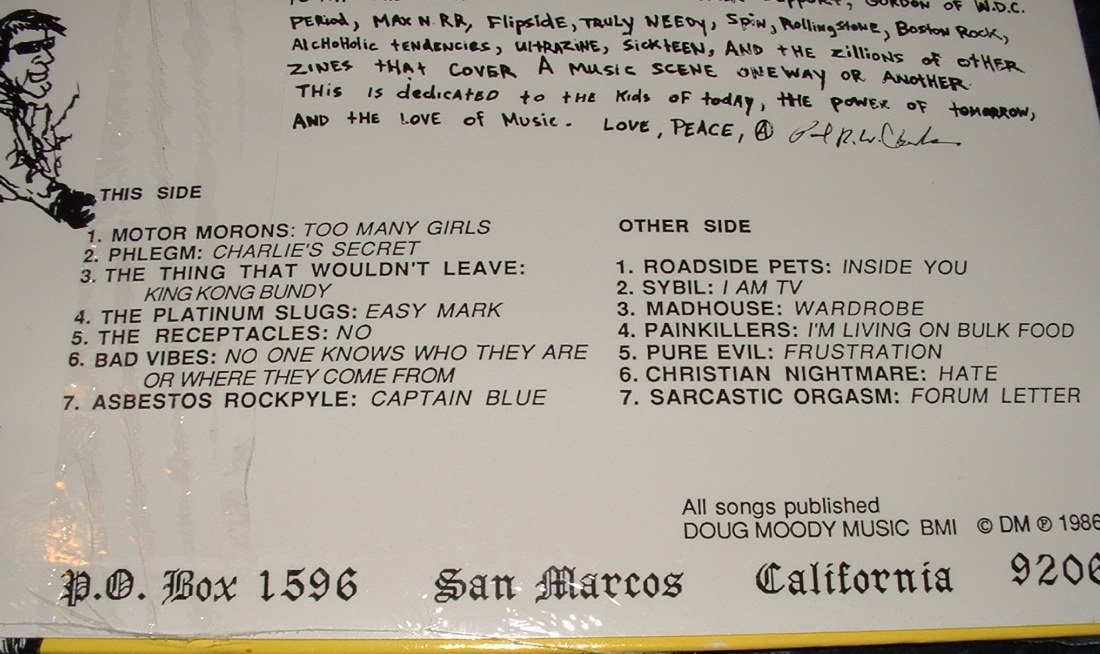 SUPPORT, GORDON OF W.D.C.
PERiod, MAX N. RR, Flipside, TRULY NEEDY, SPiN, RollingStoNE, BOSTON ROCK,
AlcHoHolic TENdENCiES, UlTRAZINE, SickTEEN, AND tHE Zillions of otHER
ZINES tHAt COVER A Music SCENE ONE WAY OR ANOTHER.
THis is dedicATED to tHE Kids OF todAY, tHE POWER OF tOMORROW,
AND tHE LOVE of Music. LOVE, PEACE, Ⓐ
THIS SIDE
1. MOTOR MORONS: TOO MANY GIRLS
2. PHLEGM: CHARLIE'S SECRET
3. THE THING THAT WOULDN'T LEAVE:
KING KONG BUNDY
4. THE PLATINUM SLUGS: EASY MARK
5. THE RECEPTACLES: NO
6. BAD VIBES: NO ONE KNOWS WHO THEY ARE
OR WHERE THEY COME FROM
7. ASBESTOS ROCKPYLE: CAPTAIN BLUE
OTHER SIDE
1. ROADSIDE PETS: INSIDE YOU
2. SYBIL: I AM TV
3. MADHOUSE: WARDROBE
4. PAINKILLERS: I'M LIVING ON BULK FOOD
5. PURE EVIL: FRUSTRATION
6. CHRISTIAN NIGHTMARE: HATE
7. SARCASTIC ORGASM: FORUM LETTER
All songs published
DOUG MOODY MUSIC BMI © DM ℗ 1986
P.O. Box 1596 San Marcos California 9206